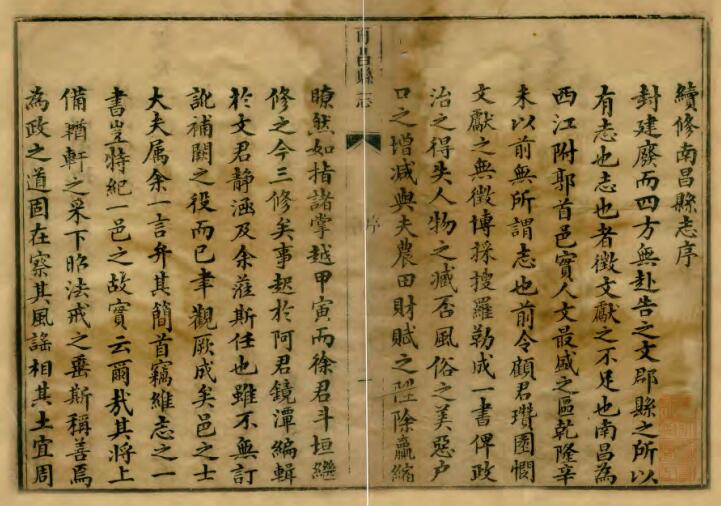 續修南昌縣志序
封建廢而四方無赴告之文郡縣之所以
有志也志也者徵文獻之不足也南昌為
西江附郭首邑實人文最盛之區乾隆辛
未以前無所謂志也前令顧君瓚園憫
文獻之無徵博採搜羅勒成一書俾政
治之得失人物之臧否風俗之美惡戶
口之增減與夫農田財賦之陞除贏縮
南昌縣志
序
一
瞭然如指諸掌越甲寅而徐君斗垣繼
修之今三修矣事起於阿君鏡潭編輯
於文君靜涵及余蒞斯任也雖不無訂
訛補闕之役而已聿觀厥成矣邑之士
大夫属余一言弁其簡首竊維志之一
書豈特紀一邑之故實云爾哉其將上
備輶軒之采下昭法戒之垂斯稱善焉
為政之道固在察其風謠相其土宜周